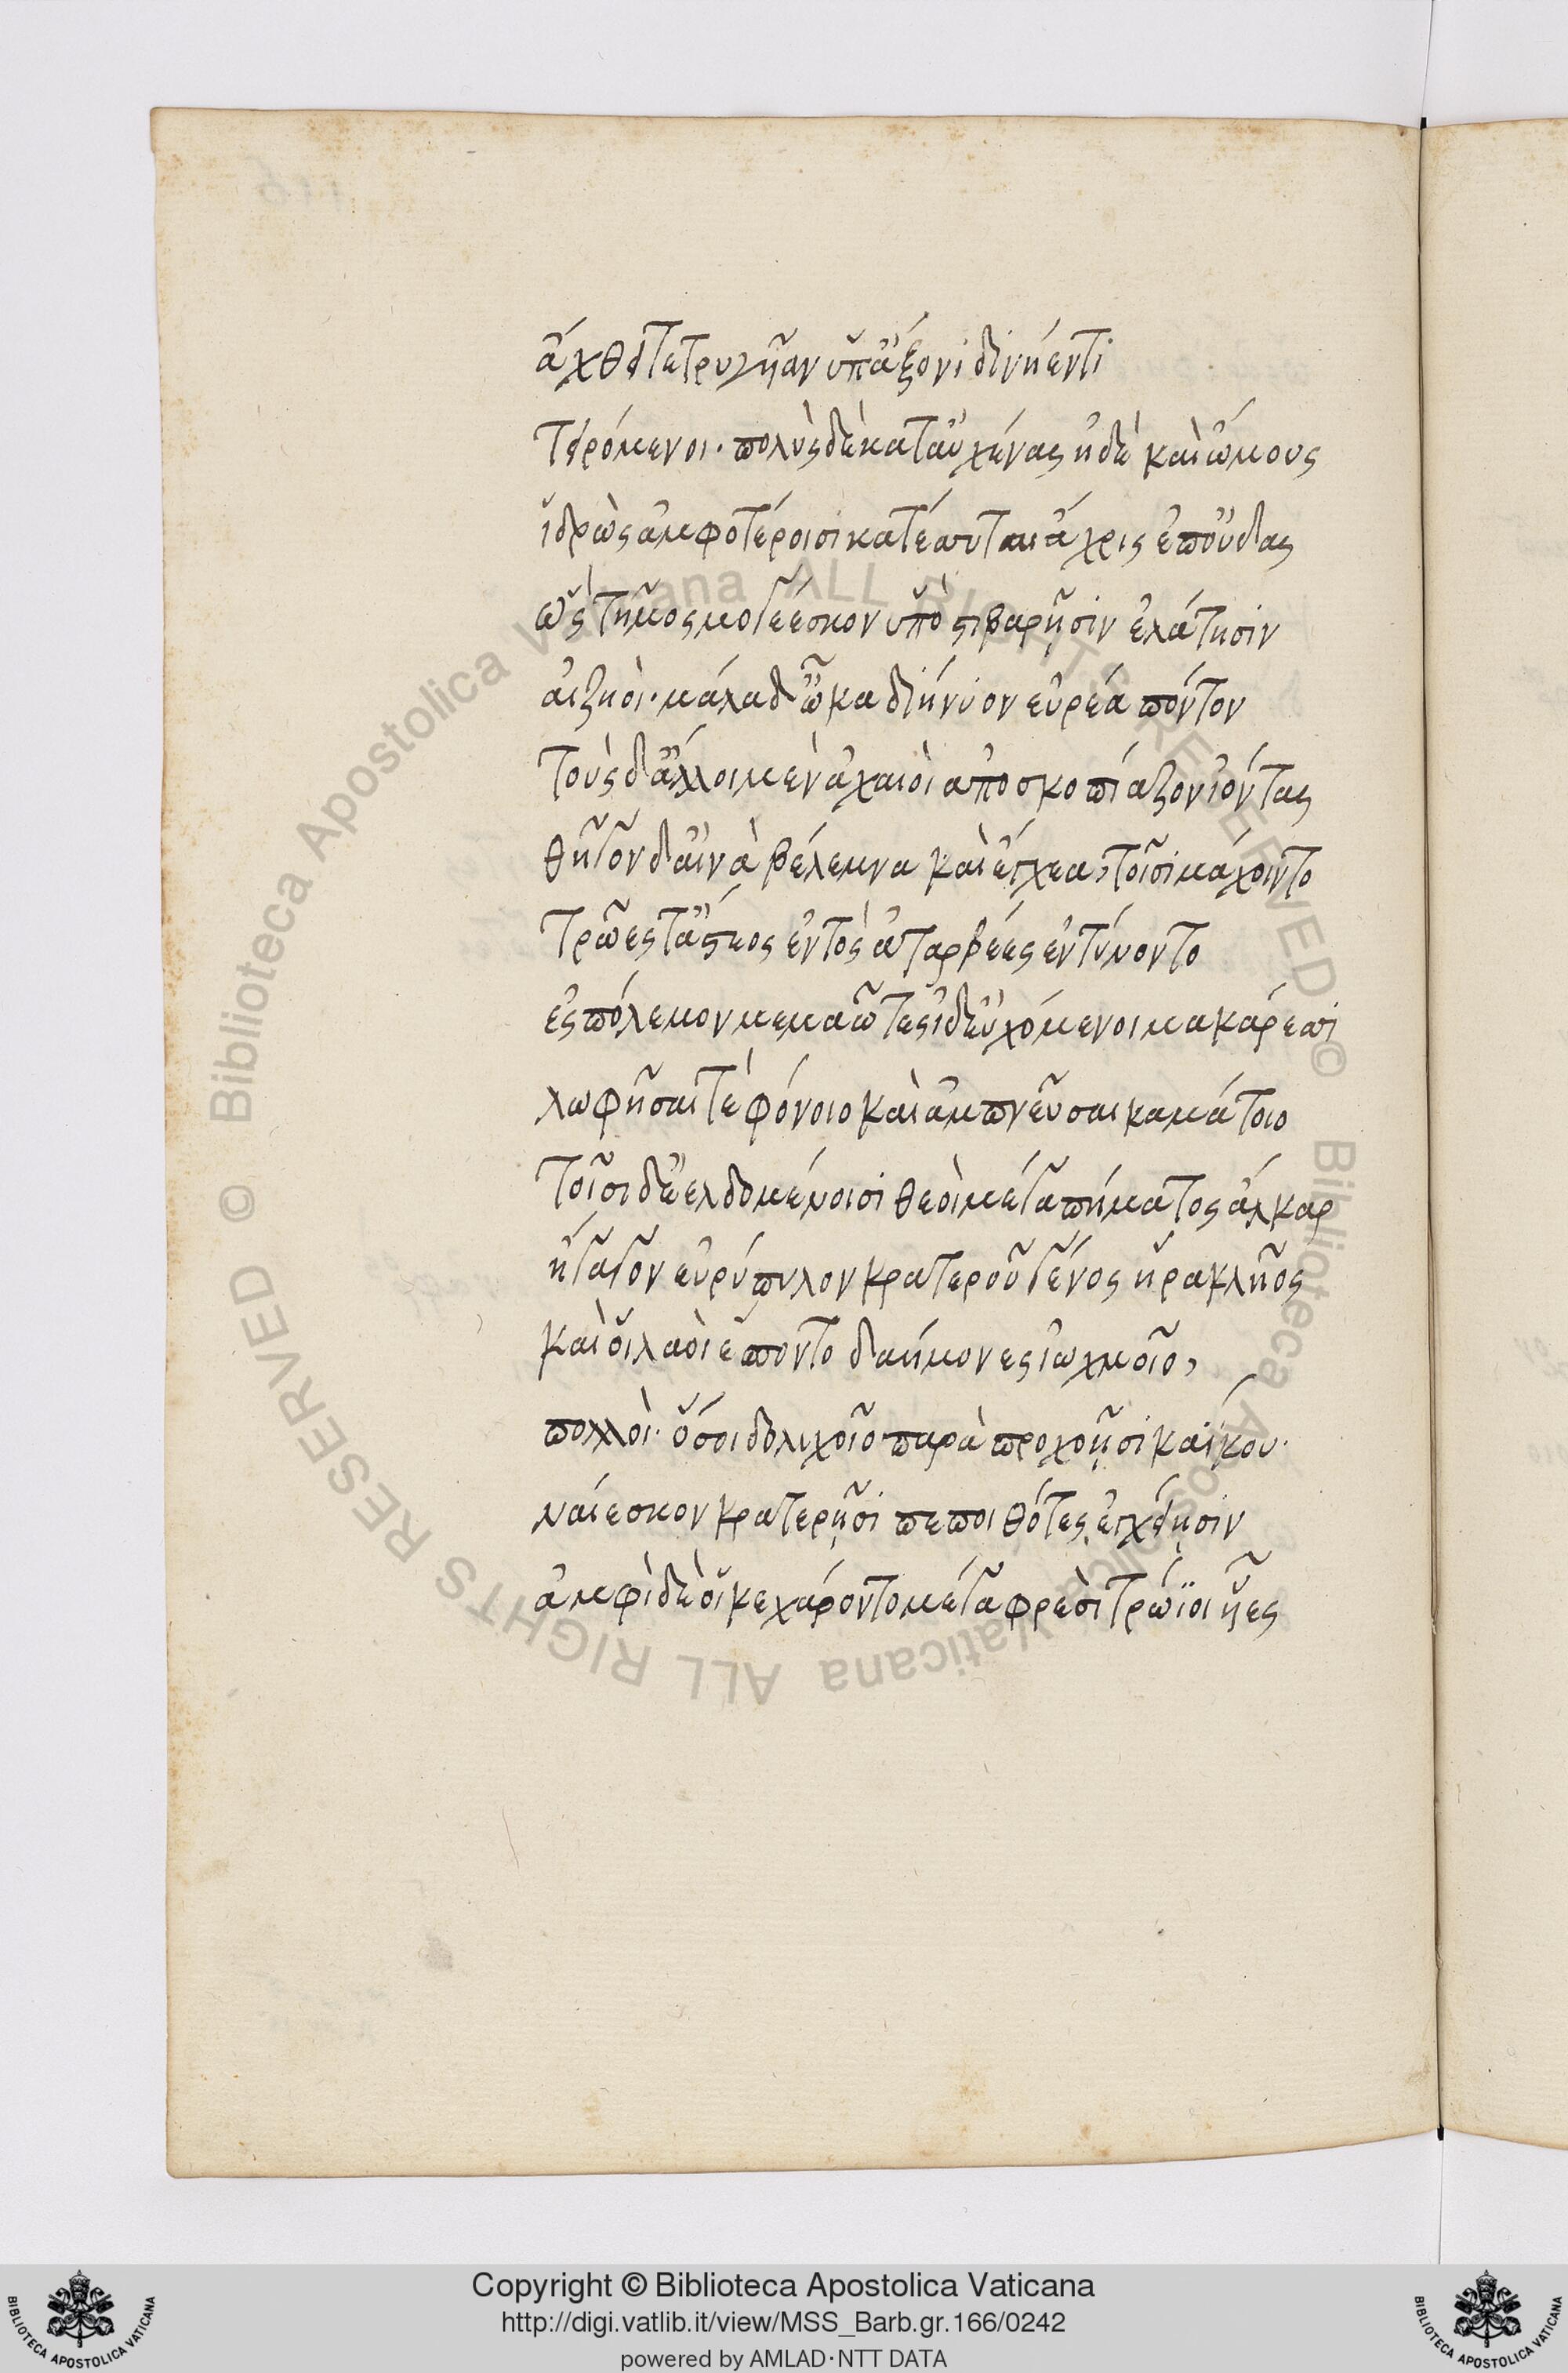 ἄχθει τετρυγῆαν ὑπ' ἄξονι δινήεντι
τειρόμενοι· πολὺς δὲ κατ' αὐχένας ἠδὲ καὶ ὤμους
ἱδρὼς ἀμφοτέροισι κατέσσυται ἄχρις ἐπ' οὔδας
ὣς τῆμος μογέεσκον ὑπὸ στιβαρῇσιν ἐλάτησιν
αἰζηοὶ· μάλα δ' ὦκα διήνυον εὐρέα πόντον
τοὺς δ' ἄλλοι μὲν ἀχαιοὶ ἀποσκοπίαζον ἰόντας
θῆγον δ' αἰνὰ βέλεμνα καὶ ἔγχεα, τοῖσι μάχοιντο
τρῶες τ' ἄστεος ἐντὸς ἀταρβέες ἐντύνοντο
ἐς πόλεμον μεμαῶτες ἰδ' εὐχόμενοι μακάρεσσι
λωφῆσαί τε φόνοιο καὶ ἀμπνεῦσαι καμάτοιο
τοῖσι δ' ἐελδομένοισι θεοὶ μέγα πήματος ἄλκαρ
ἤγαγον εὐρύπυλον κρατεροῦ γένος ἡρακλῆος
καὶ οἱ λαοὶ ἕποντο δαήμονες ἰωχμοῖο,
πολλοὶ· ὅσοι δολιχοῖο παρὰ προχοῇσι καΐκου·
ναίεσκον κρατερῇσι πεποιθότες ἐγχείῃσιν
ἀμφὶ δὲ οἱ κεχάροντο μέγα φρεσὶ τρώϊοι ἧες
Copyright © Biblioteca Apostolica Vaticana
http://digi.vatlib.it/view/MSS_Barb.gr.166/0242
powered by AMLAD·NTT DATA
BIBLIOTECA APOSTOLICA VATICANA
BIBLIOTECA APOSTOLICA VATICANA
© Biblioteca Apostolica Vaticana ALL RIGHTS RESERVED
© Biblioteca Apostolica Vaticana ALL RIGHTS RESERVED